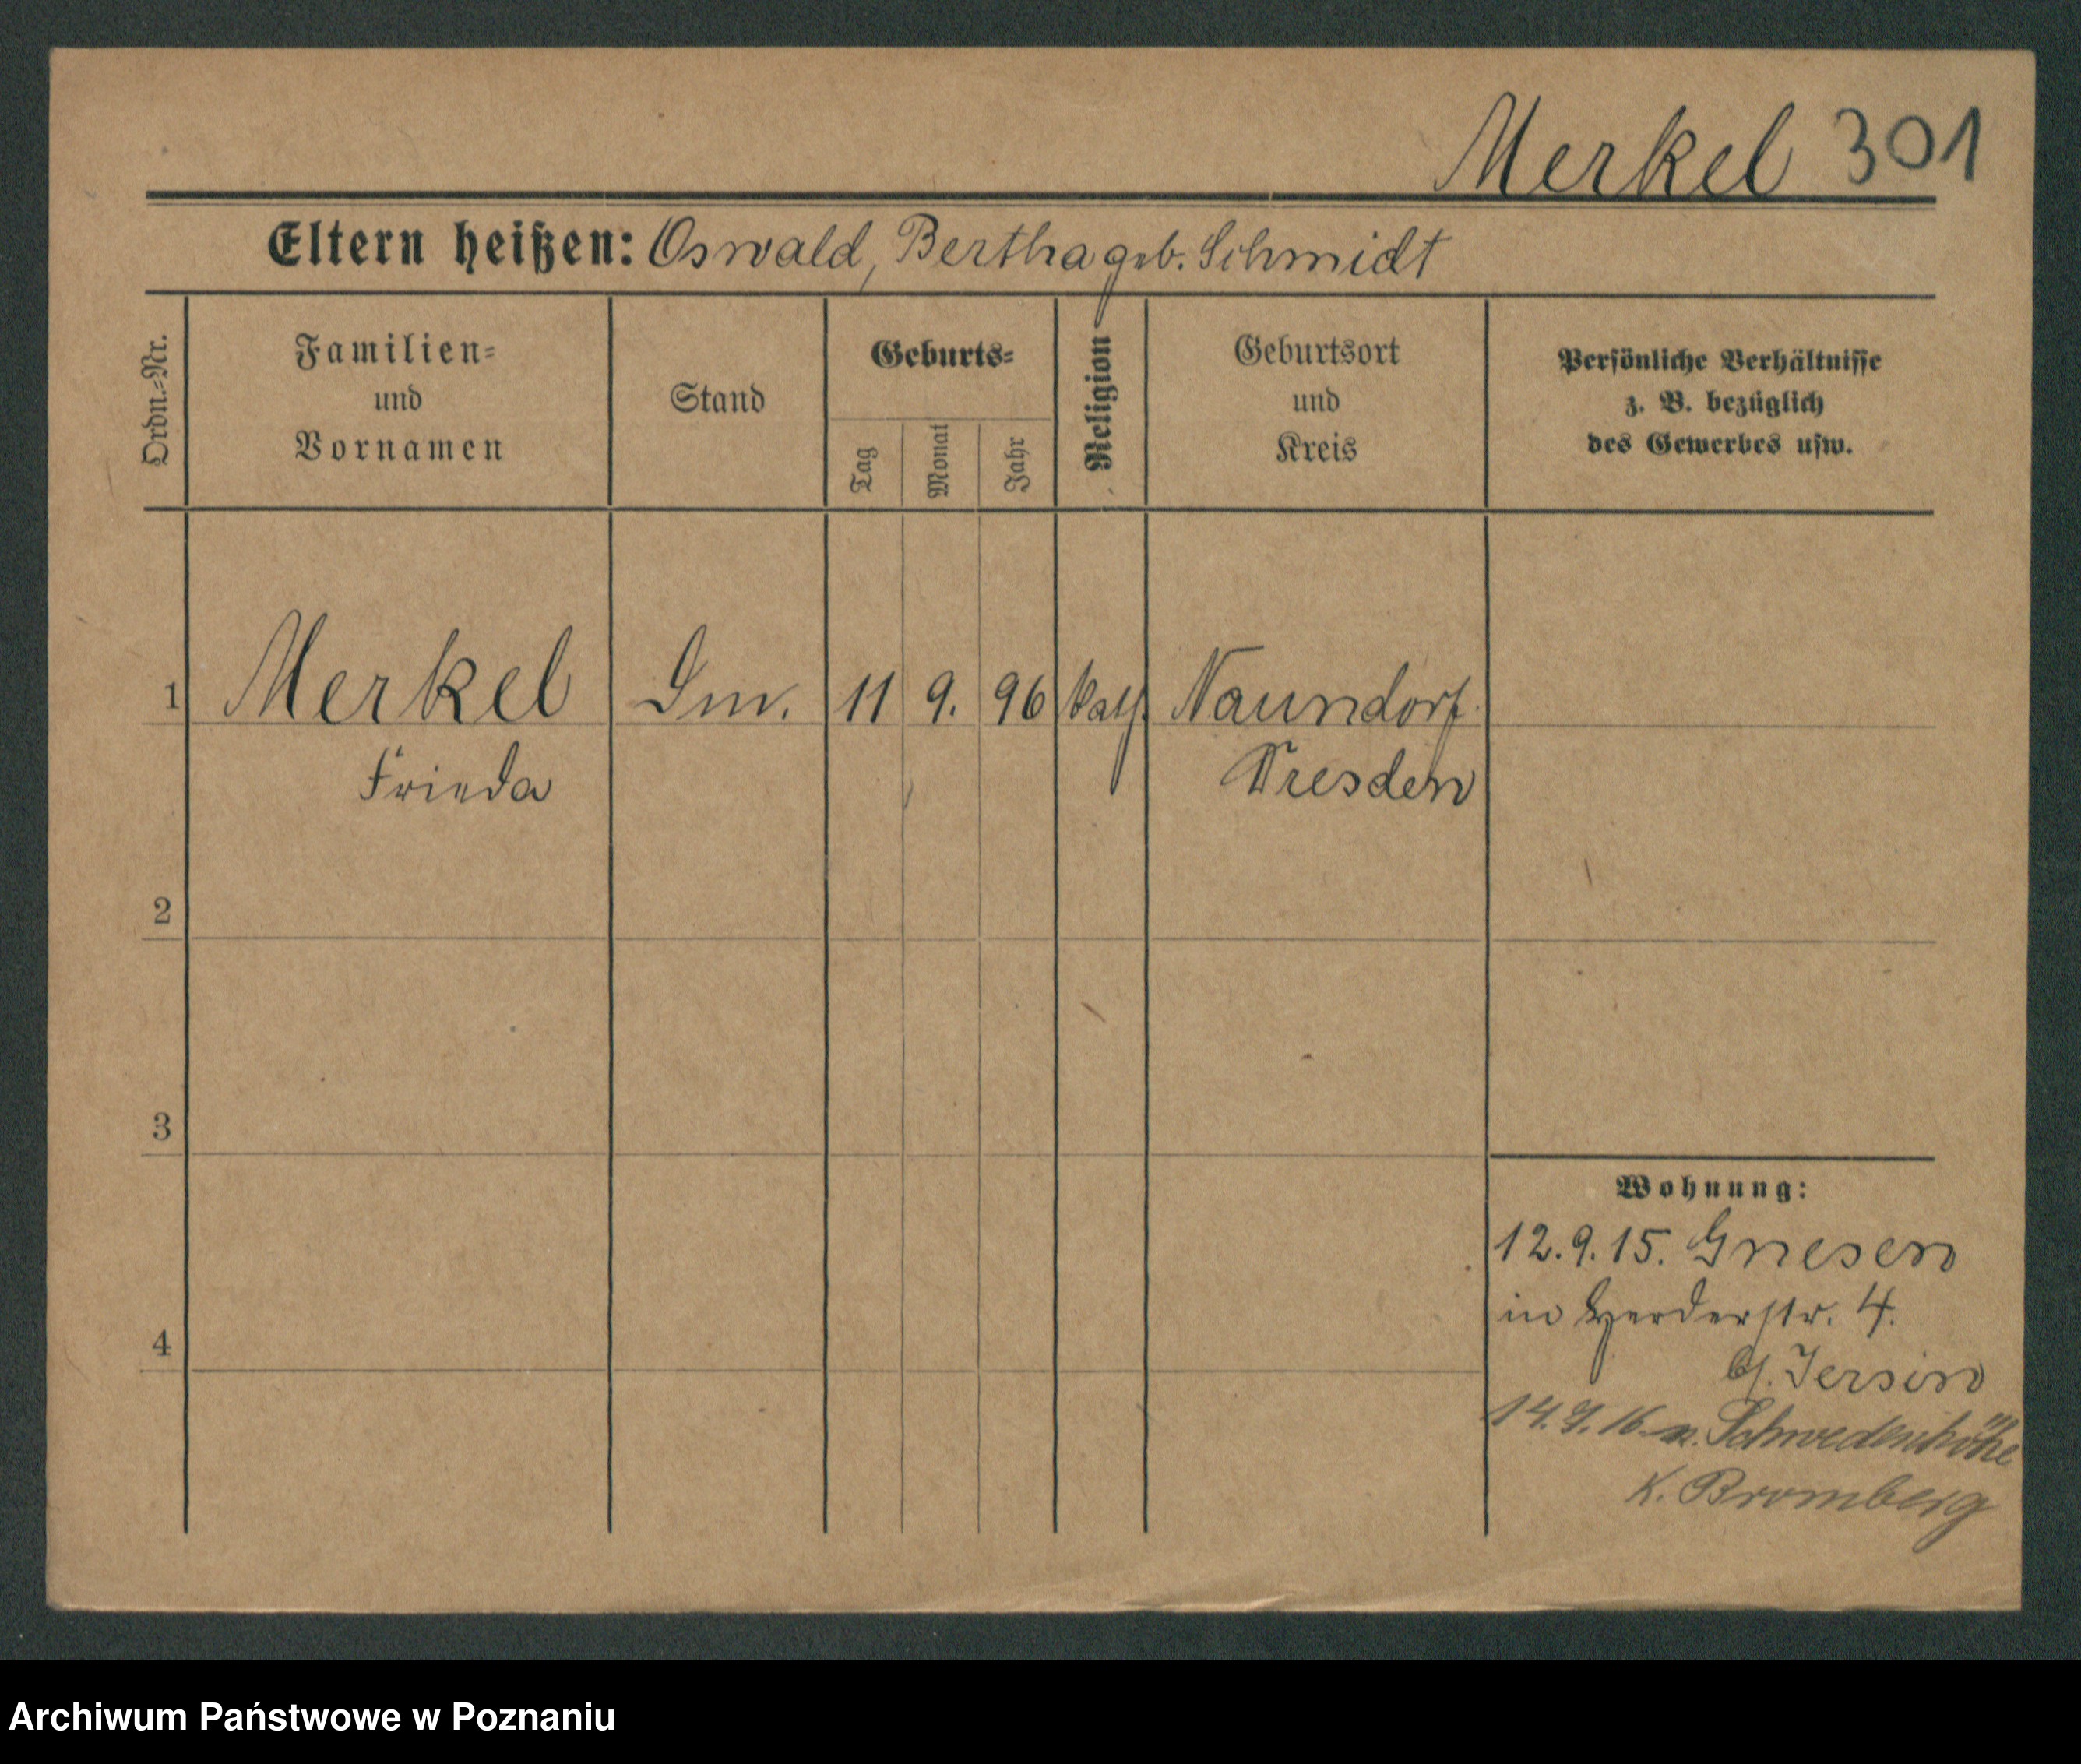 Merkel 301
Eltern heißen: Oswald, Bertha geb. Schmidt
Ordn.-Nr.
Familien-
und
Vornamen
Stand
Geburts-
Tag
Monat
Jahr
Religion
Geburtsort
und
Kreis
Persönliche Verhältnisse
z. B. bezüglich
des Gewerbes usw.
1 Merkel 11 9. 96 kath. Naundorf
Frieda Dresden
2
3
4
Wohnung:
12.9.15. Gnesen
in Herderstr. 4.
b/. Jersin
14.7.16 n. Schwedenhöhe
K. Bromberg
Archiwum Państwowe w Poznaniu